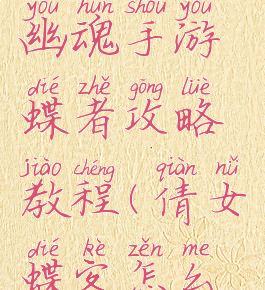 yōu hún shǒu yóu
幽魂手游
dié zhě gōng lüè
蝶者攻略
jiào chéng qiàn nǚ
教程(倩女
dié kè zěn me
蝶客怎么